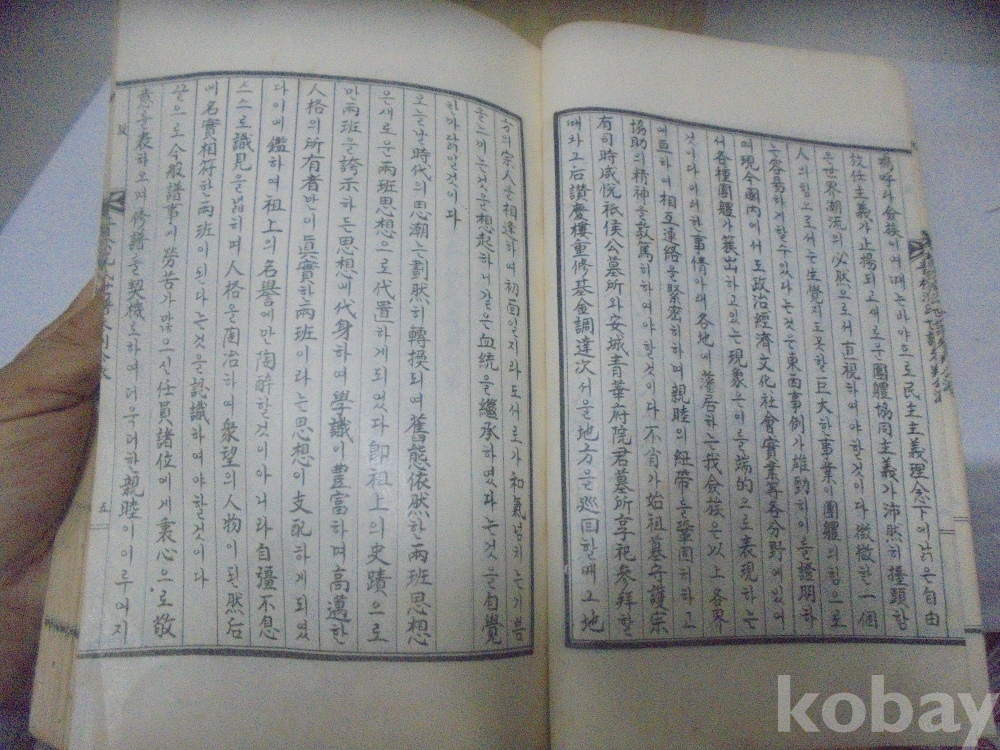 에 와서 民主主義理念下에 낡은 自由
放任主義가 止揚되고 새로운 團體協同主義가 沛然히 擡頭함
은 世界潮流의 必然으로서 直視하여야 할것이다 微微한 一個
人의 힘으로서는 生覺지도 못할 巨大한 事業이 團體의 힘으로
는 容易하게 할수있다는것은 東西事例가 雄勁히 이를 證明하
며 現今國內에서도 政治經濟文化社會實業等各分野에있어
서 各種團體가 簇出하고있는 現象은 이를 端的으로 表現하는
것이다 이러한 事情아래 各地에 藩居하는 我 族은 以上各界
에 亘하여 相互連絡을 緊密히하며 親睦의 紐帶를 鞏固히하고
協助의 精神을 敦篤히하여야 할것이다 不肖가 始祖墓守護宗
有司時咸悅祗侯公墓所와 安城青華府院君墓所享祀參拜할
때와 그后讚慶樓重修基金調達次서울地方을 巡回할때 그地
方의 宗人을 相逢하여 初面일지라도 서로가 和氣넘치는 기쁨
을 느끼는것을 想起하니 같은 血統을 繼承하였다는것을 自覺
한까닭일것이다
오늘날 時代의 思潮는 劃然히 轉換되여 舊態依然한 兩班思想
은 새로운 兩班思想으로 代置하게 되였다 即祖上의 史蹟으로
만 兩班을 誇示하든 思想에 代身하여 學識이 豊富하며 高邁한
人格의 所有者만이 眞實한 兩班이라는 思想이 支配하게 되였
다 이에 鑑하여 祖上의 名譽에만 陶醉할것이 아니라 自彊不息
스스로 識見을 넓히며 人格을 陶冶하여 衆望의 人物이 된然后
에 名實相符한 兩班이 된다는것을 認識하여야 할것이다
끝으로 今般譜事에 勞苦가 많으신 任員諸位에게 衷心으로 敬
意를 表하오며 修譜를 契機로하여 더욱더한 親睦이 이루여지
五
kobay